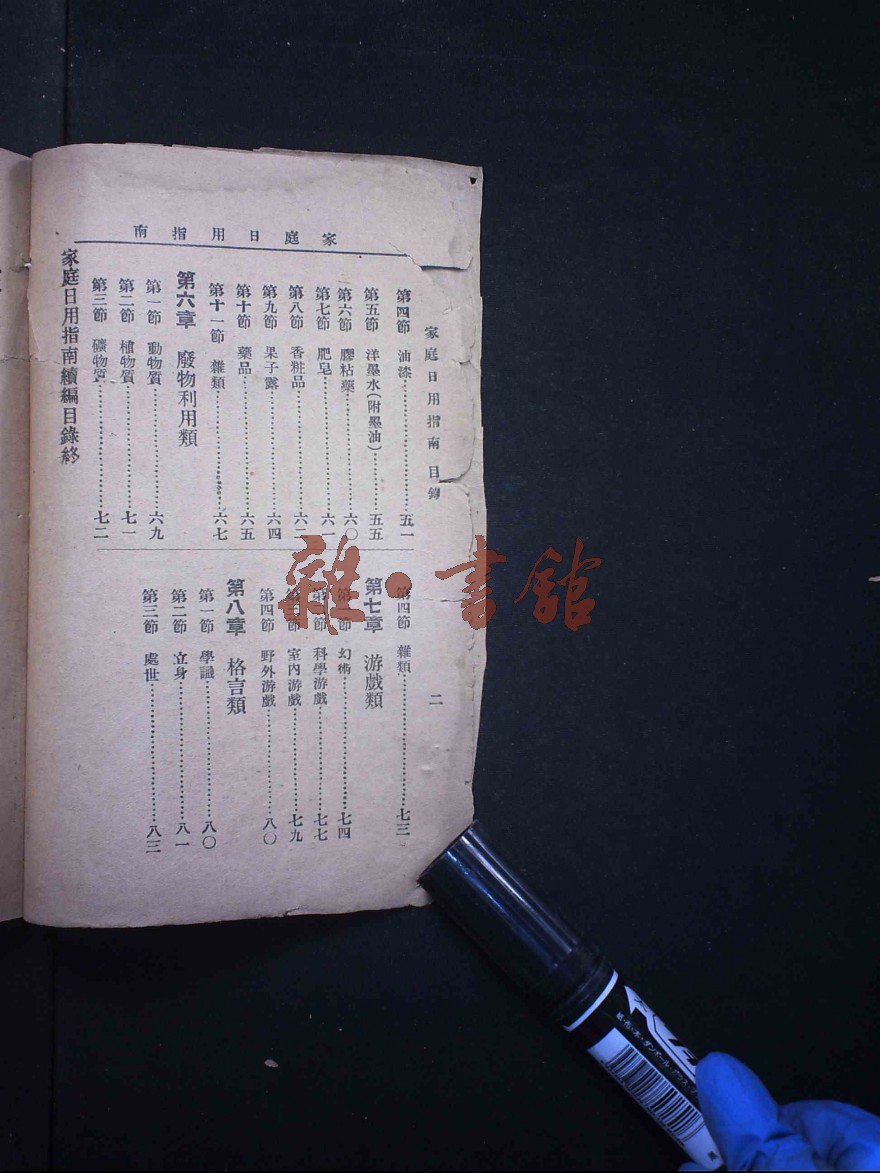 家庭日用指南
家庭日用指南 目錄
二
第四節 油漆 五一
第五節 洋墨水(附墨油) 五五
第六節 膠粘藥 六〇
第七節 肥皂 六一
第八節 香粧品 六二
第九節 果子露 六四
第十節 藥品 六五
第十一節 雜類 六七
第六章 廢物利用類
第一節 動物質 六九
第二節 植物質 七一
第三節 礦物質 七二
第四節 雜類 七三
第七章 游戲類
第一節 幻術 七四
第二節 科學游戲 七七
第三節 室內游戲 七九
第四節 野外游戲 八〇
第八章 格言類
第一節 學識 八〇
第二節 立身 八一
第三節 處世 八三
家庭日用指南續編目錄終
雜·書館